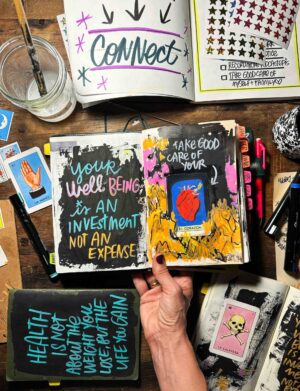 CONNECT
TAKE GOOD CARE OF
Your
Well BEING
is AN
INVESTMENT
NOT AN
EXPENSE
TAKE GOOD
CARE OF
YOUR
EL CORAZON
HEALTH
IS NOT
ABOUT THE
WEIGHT YOU
LOSE, BUT THE
LIFE YOU GAIN